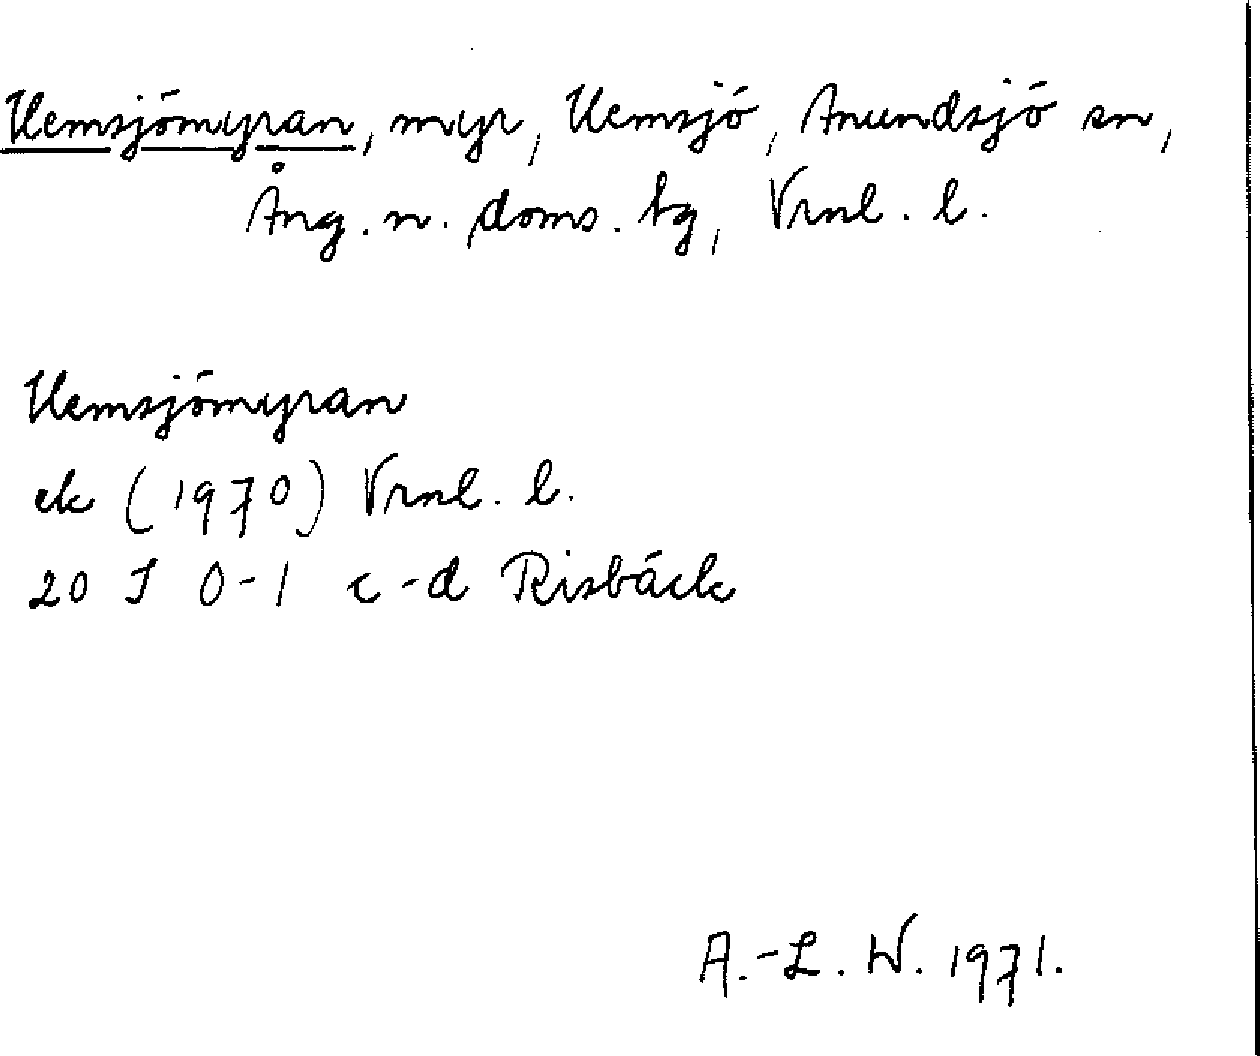 Hemsjömyran, myr, Hemsjö, Anundsjö sn,
Ång. n. doms. tg, Vrnl. l.
Hemsjömyran
ek (1970) Vrnl. l.
20 J 0-1 c-d Risbäck
A.-L. W. 1971.